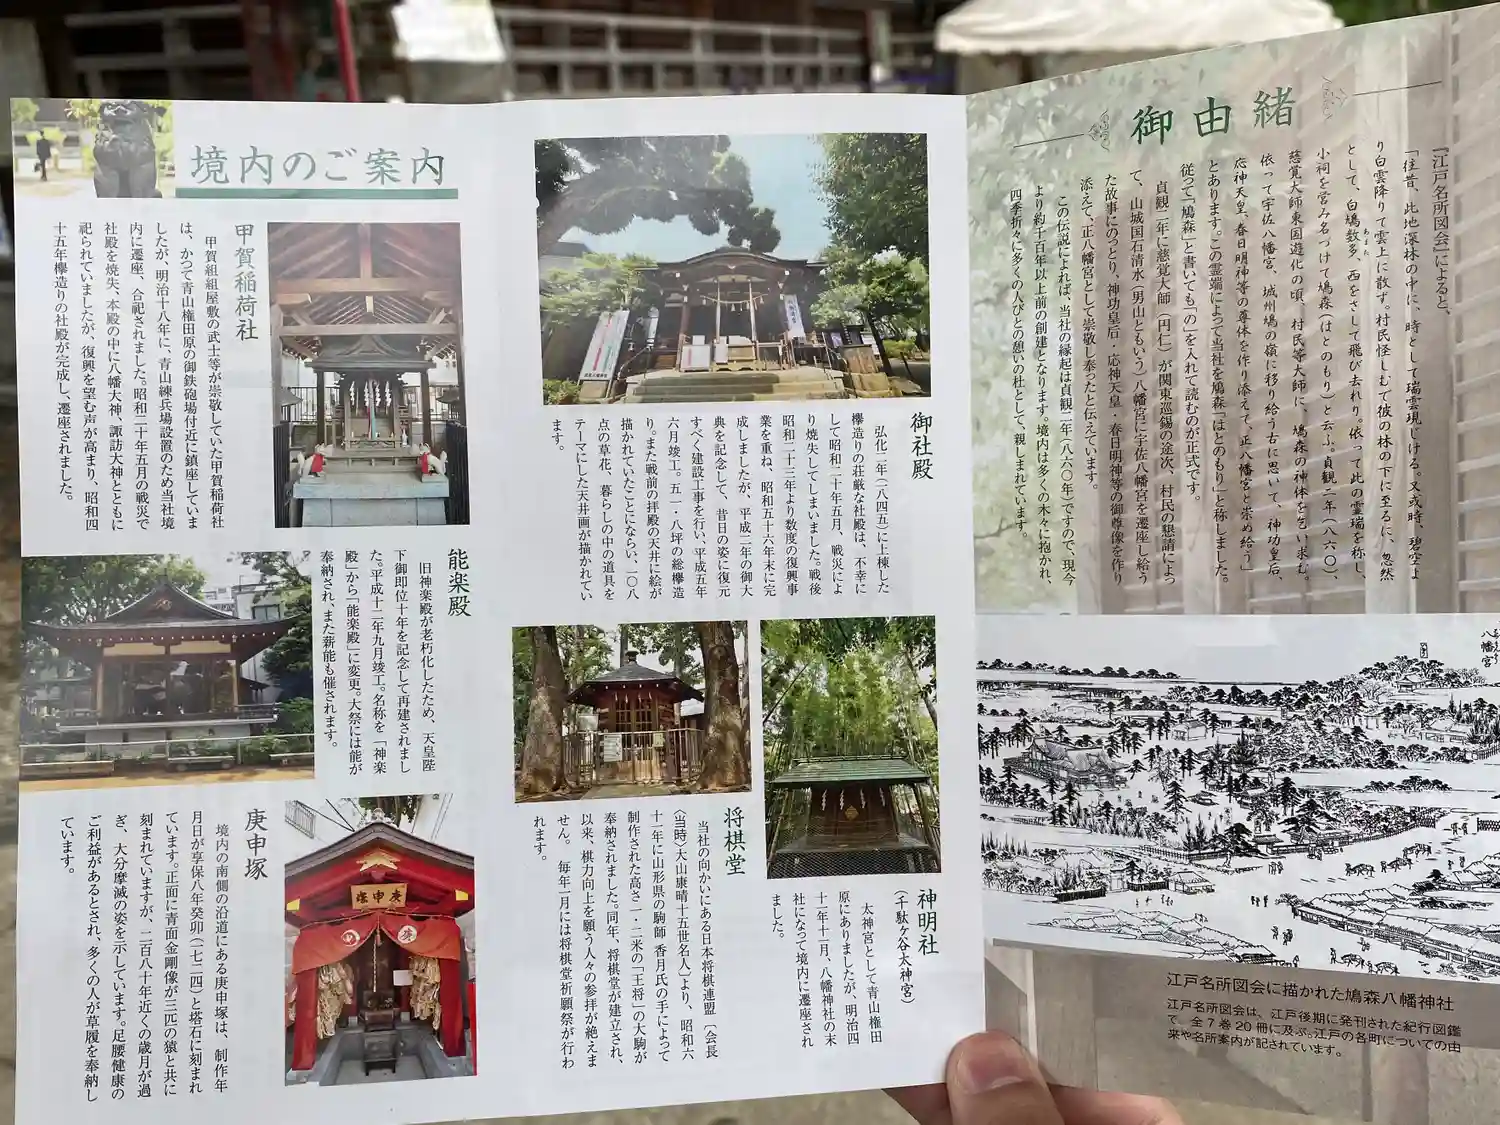 御由緒
『江戸名所図会』によると、
「往昔、此地深林の中に、時として瑞雲現じける。又或時、碧空よ
り白雲降りて雲上に散ず。村民怪しむで彼の林の下に至るに、忽然
として、白鳩数多、西をさして飛び去れり。依って此の霊瑞を称し、
あまた
小祠を営み名づけて鳩森(はとのもり)と云ふ。貞観二年(八六〇)、
慈覚大師東国遊化の頃、村民等大師に、鳩森の神体を乞い求む。
依って宇佐八幡宮、城州鳩の嶺に移り給う古に思いて、神功皇后、
応神天皇、春日明神等の尊体を作り添えて、正八幡宮と崇め給う」
とあります。この霊端によって当社を鳩森「はとのもり」と称しました。
従って「鳩森」と書いても「の」を入れて読むのが正式です。
貞観二年に慈覚大師(円仁)が関東巡錫の途次、村民の懇請によっ
て、山城国石清水(男山ともいう)八幡宮に宇佐八幡宮を遷座し給う
た故事にのっとり、神功皇后・応神天皇・春日明神等の御尊像を作り
添えて、正八幡宮として崇敬し奉ったと伝えています。
この伝説によれば、当社の縁起は貞観二年(八六〇年)ですので、現今
より約千百年以上前の創建となります。境内は多くの木々に抱かれ、
四季折々に多くの人びとの憩いの杜として、親しまれています。
八幡宮
江戸名所図会に描かれた鳩森八幡神社
江戸名所図会は、江戸後期に発刊された紀行図鑑
で、全7巻20冊に及ぶ。江戸の各町についての由
来や名所案内が記されています。
御社殿
弘化二年(一八四五)に上棟した
欅造りの荘厳な社殿は、不幸に
して昭和二十年五月、戦災によ
り焼失してしまいました。戦後
昭和二十三年より数度の復興事
業を重ね、昭和五十六年末に完
成しましたが、平成二年の御大
典を記念して、昔日の姿に復元
すべく建設工事を行い、平成五年
六月竣工。五一・八坪の総欅造
り。また戦前の拝殿の天井に絵が
描かれていたことにならい、一〇八
点の草花、暮らしの中の道具を
テーマにした天井画が描かれてい
ます。
神明社
(千駄ヶ谷大神宮)
太神宮として青山権田
原にありましたが、明治四
十一年十一月、八幡神社の末
社になって境内に遷座され
ました。
将棋堂
当社の向かいにある日本将棋連盟〔会長
〈当時〉大山康晴十五世名人〕より、昭和六
十一年に山形県の駒師 香月氏の手によって
制作された高さ一・二米の「王将」の大駒が
奉納されました。同年、将棋堂が建立され、
以来、棋力向上を願う人々の参拝が絶えま
せん。 毎年一月には将棋堂祈願祭が行わ
れます。
境内のご案内
甲賀稲荷社
甲賀組組屋敷の武士等が崇敬していた甲賀稲荷社
は、かつて青山権田原の御鉄砲場付近に鎮座していま
したが、明治十八年に、青山練兵場設置のため当社境
内に遷座、合祀されました。昭和二十年五月の戦災で
社殿を焼失、本殿の中に八幡大神、諏訪大神とともに
祀られていましたが、復興を望む声が高まり、昭和四
十五年欅造りの社殿が完成し、遷座されました。
能楽殿
旧神楽殿が老朽化したため、天皇陛
下御即位十年を記念して再建されまし
た。平成十二年九月竣工。名称を「神楽
殿」から「能楽殿」に変更。大祭には能が
奉納され、また薪能も催されます。
庚申塚
境内の南側の沿道にある庚申塚は、制作年
月日が享保八年癸卯(一七二四)と塔石に刻まれ
ています。正面に青面金剛像が三匹の猿と共に
刻まれていますが、二百八十年近くの歳月が過
ぎ、大分摩滅の姿を示しています。足腰健康の
ご利益があるとされ、多くの人が草履を奉納し
ています。
庚申塚